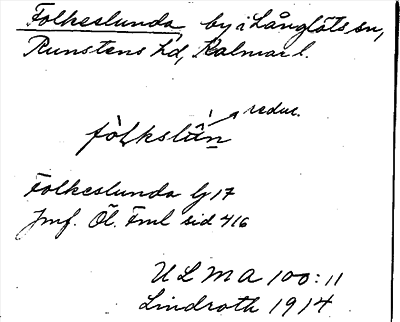 Folkeslunda by i Långlöts sn,
Runstens hd, Kalmar l.
reduc.
fòlkslún
Folkeslunda lj 17
Jmf. Öl. Fml sid 416
ULMA 100:11
Lindroth 1914